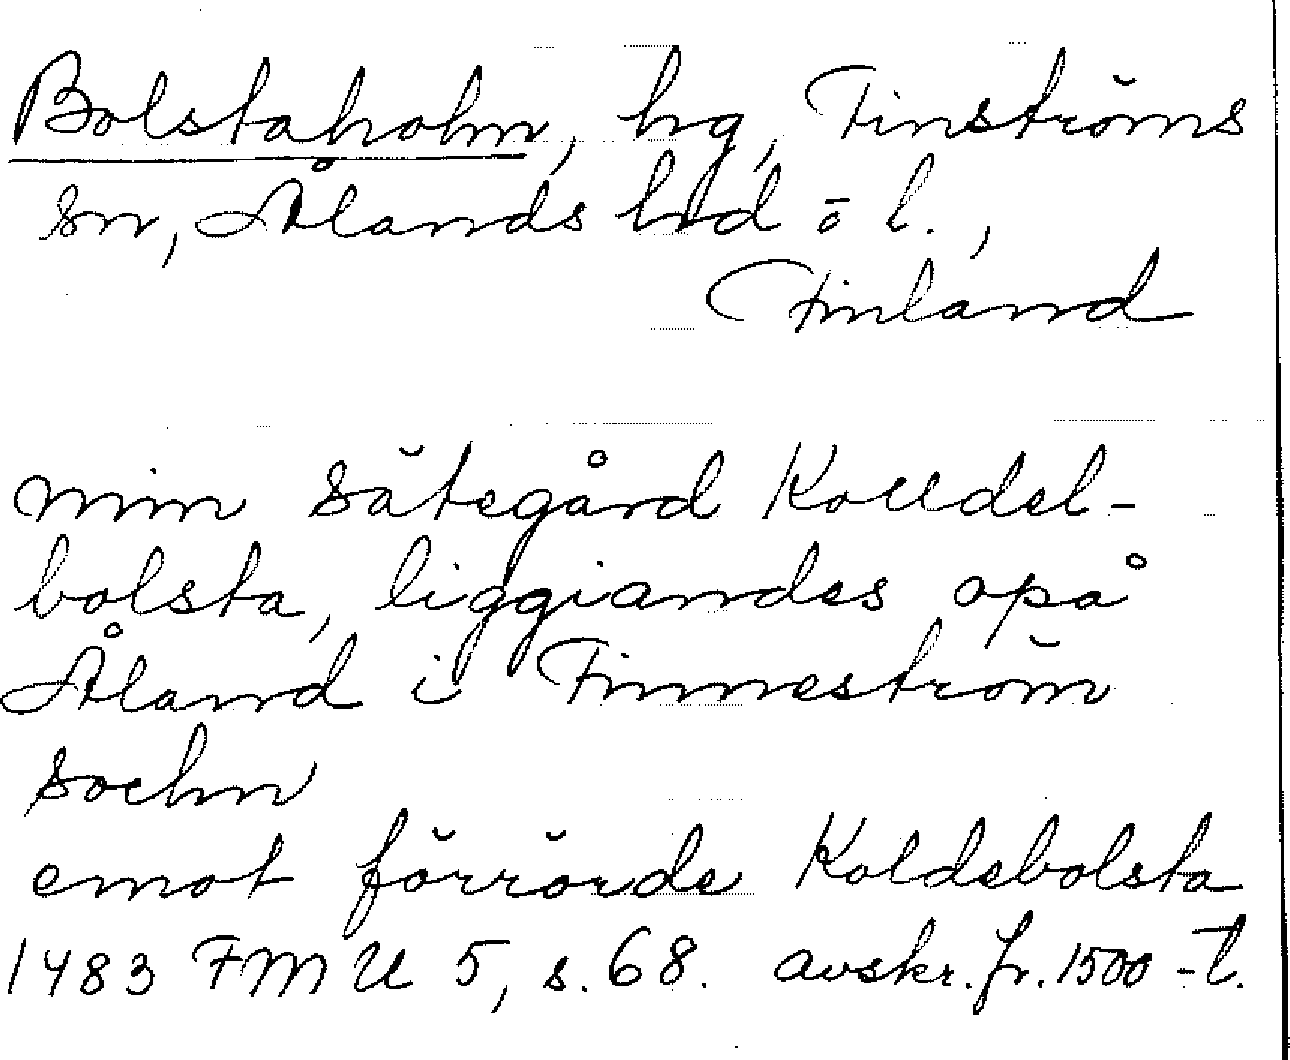 Bolstaholm, hg, Finströms
sn, Ålands hd o l.,
Finland
min sätegård Kolldel-
bolsta, liggiandes opå
Åland i Finneström
sochn
emot förrörde Koldebolsta
1483 FMU 5, s. 68. avskr. fr. 1500-t.